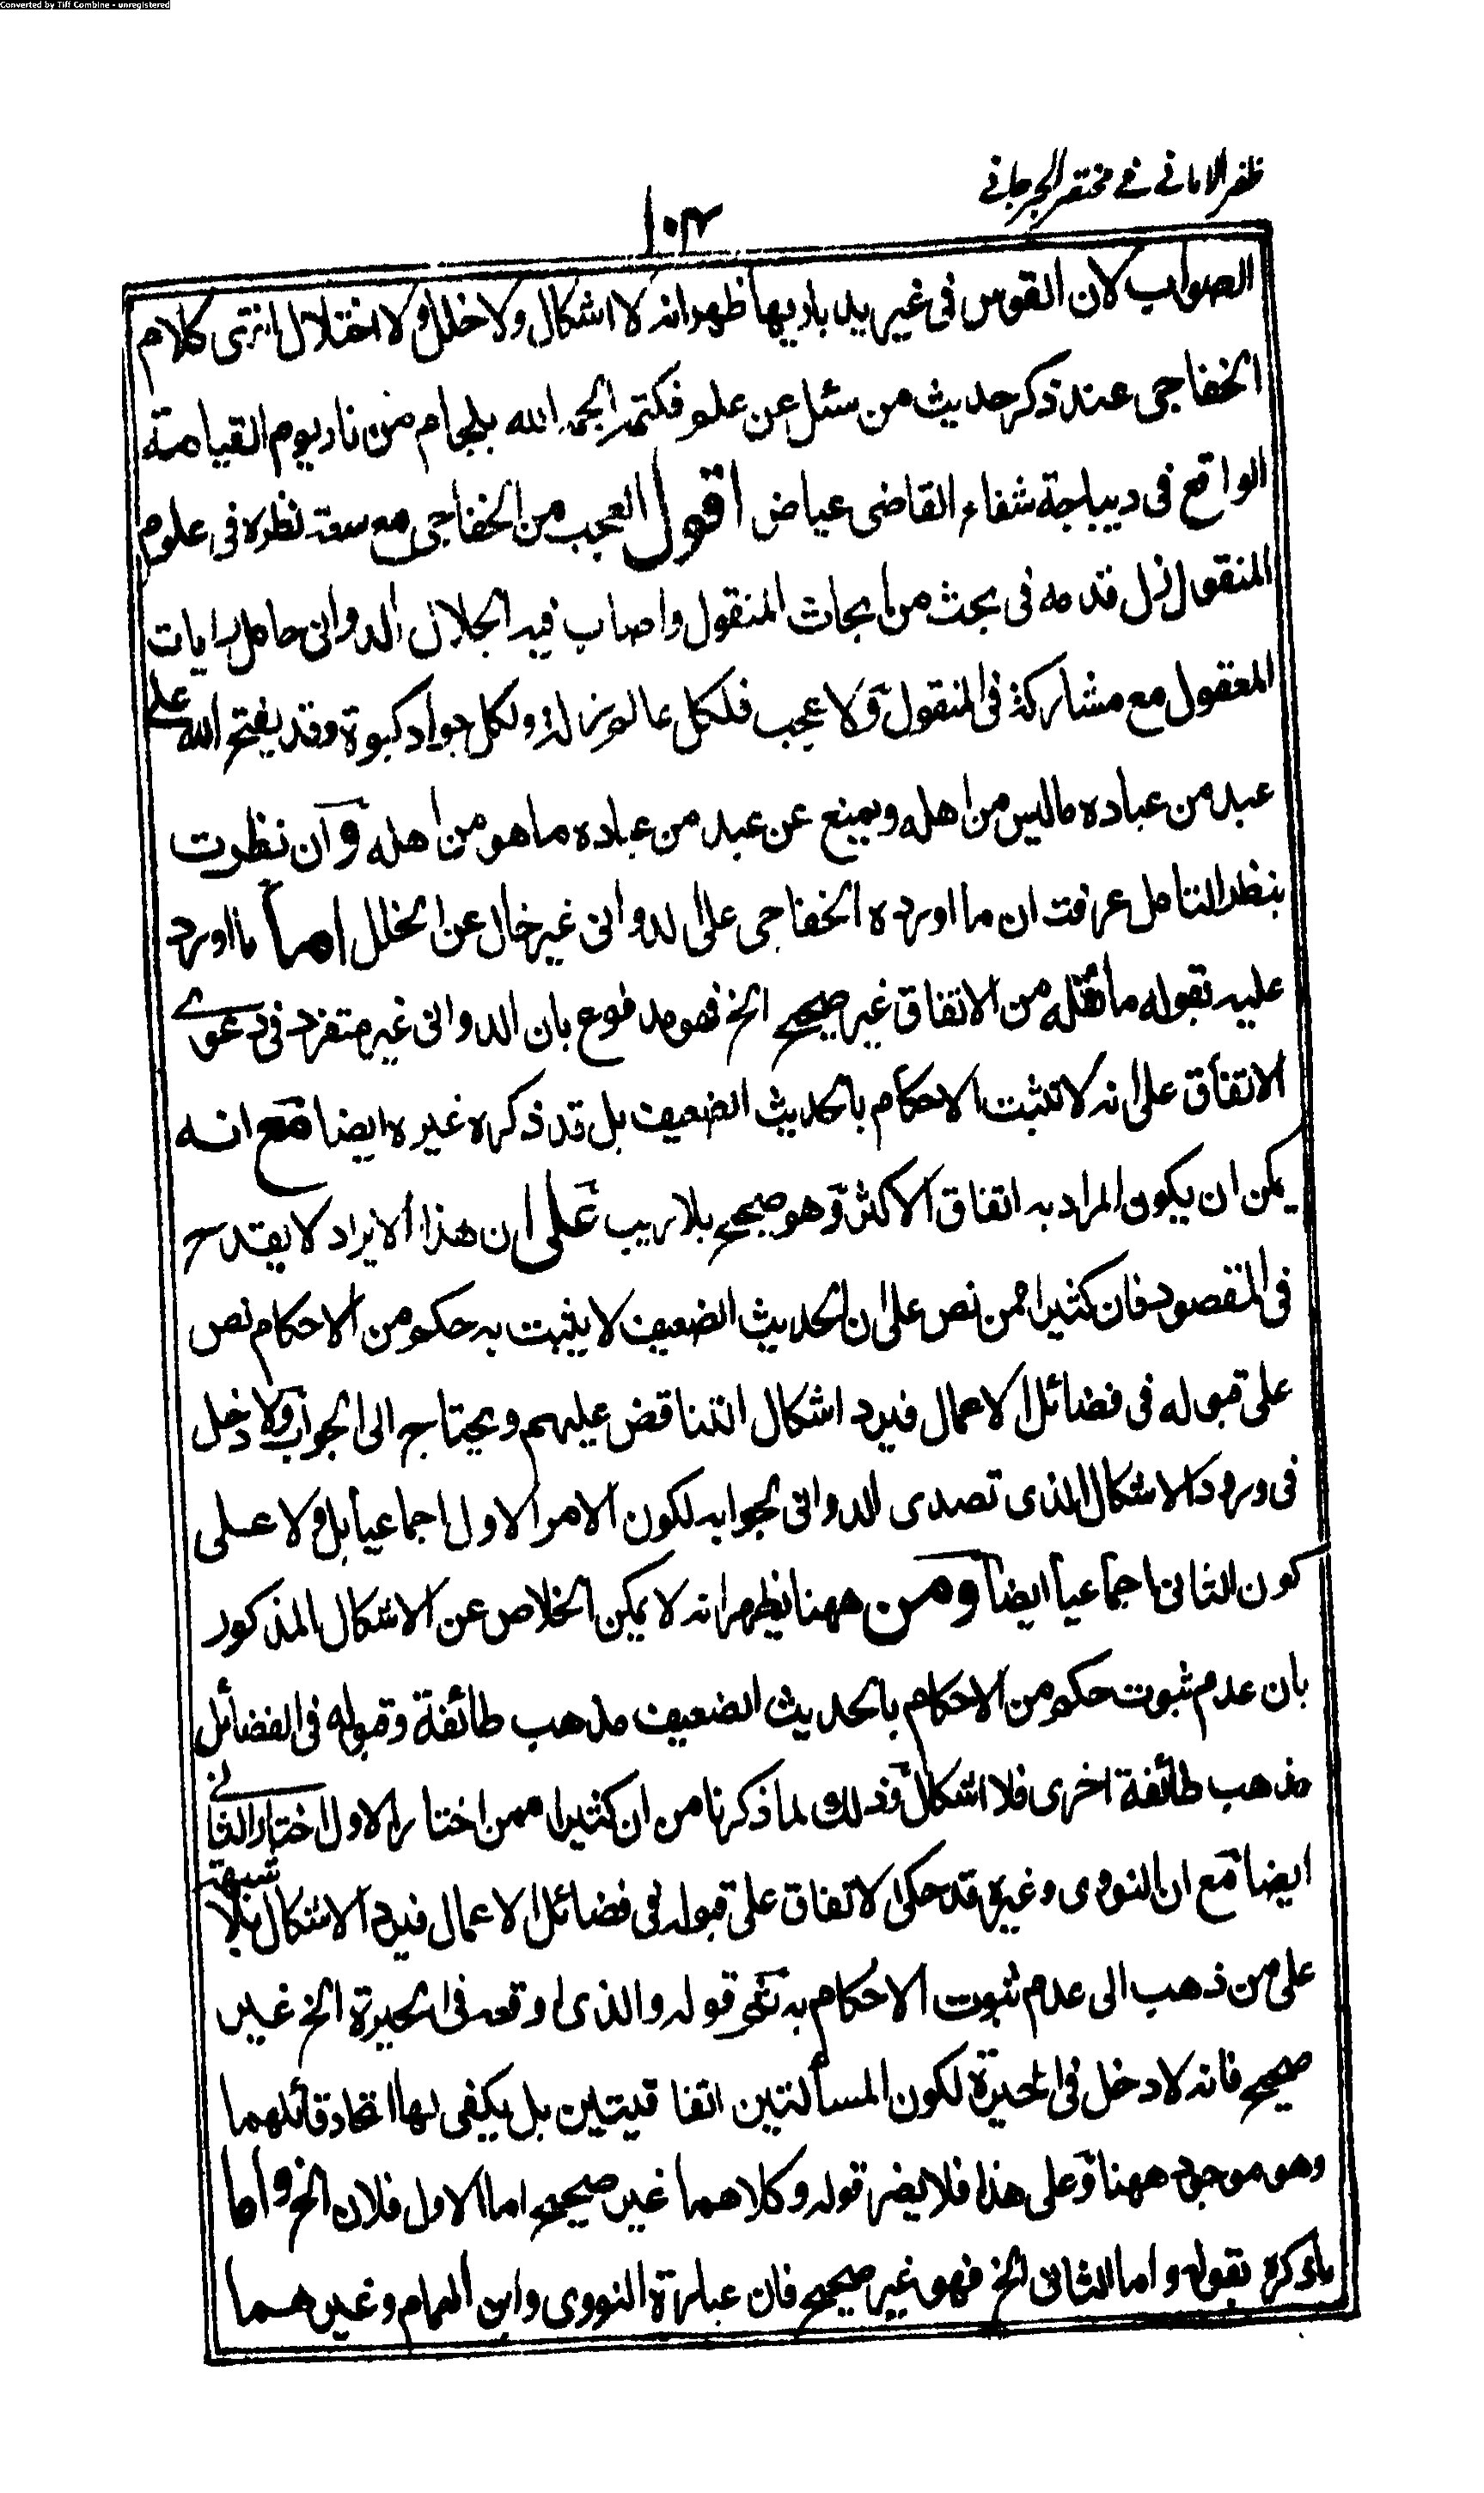 Converted by Tiff Combine - unregistered
ظفر الامانے فے مختصر الجرجانے
١٠٤
الصواب لان القوس فى غير يد باريها ظهر انه لا اشكال ولا خلل ولا اختلال انتهى كلام
الخفاجى عند ذكر حديث من سئل عن علم فكتمه الجمه الله بلجام من نار يوم القيامة
الواقع فى ديباجة شفاء القاضى عياض اقول العجب من الخفاجى مع سعة نظره فى علوم
المنقول زل قدمه فى بحث من ابحاث المنقول واصاب فيه الجلال الدوانى حامل رايات
المعقول مع مشاركة فى المنقول ولا عجب فلكل عالم زلة ولكل جواد كبوة وقد يفتح الله على
عبد من عباده ماليس من اهله ويمنع عن عبد من عباده ما هو من اهله وان نظرت
بنظر التامل عرفت ان ما اورده الخفاجى على الدوانى غير خال عن الخلل اما ما اورد
عليه بقوله ما نقله من الاتفاق غير صحيح الخ فهو مدفوع بان الدوانى غير متفرد فى دعوے
الاتفاق على انه لا تثبت الاحكام بالحديث الضعيف بل قد ذكره غيره ايضا مع انه
يمكن ان يكون المراد به اتفاق الاكثر وهو صحيح بلا ريب على ان هذا الايراد لا يقدح
فى المقصود فان كثيرا ممن نص على ان الحديث الضعيف لا يثبت به حكم من الاحكام نص
على قبوله فى فضائل الاعمال فيرد اشكال التناقض عليهم ويحتاج الى الجواب ولا دخل
فى ورود الاشكال الذى تصدى الدوانى لجوابه لكون الامر الاول اجماعيا بل ولا على
كون الثانى اجماعيا ايضا ومن ههنا يظهر انه لا يمكن الخلاص عن الاشكال المذكور
بان عدم ثبوت حكم من الاحكام بالحديث الضعيف مذهب طائفة وقبوله فى الفضائل
مذهب طائفة اخرى فلا اشكال وذلك لما ذكرنا من ان كثيرا ممن اختار الاول اختار الثانے
ايضا مع ان النووى وغيره قد حكى الاتفاق على قبوله فى فضائل الاعمال فيرد الاشكال بلا شبهة
على من ذهب الى عدم ثبوت الاحكام به نحو قوله والذى اوقعه فى الحيرة الخ غير
صحيح فانه لا دخل فى الحيرة لكون المسألتين اتفاقيتين بل يكفى لها اتحاد قائلهما
وهو موجود ههنا وعلى هذا فلا يضر قوله وكلاهما غير صحيح اما الاول فلان الخ واما
ماذكره بقوله واما الثانى الخ فهو غير صحيح فان عبارة النووى وابن الهمام وغيرهما